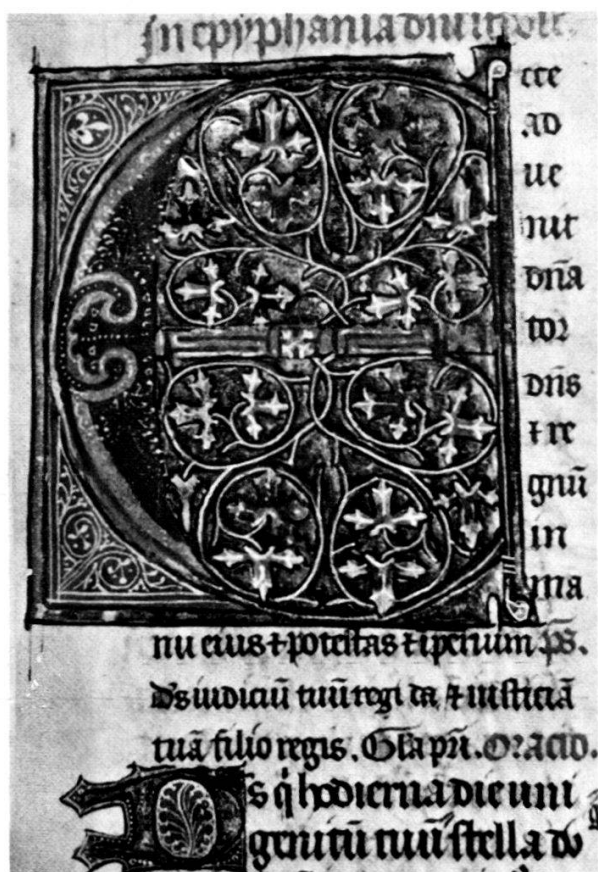 In epyphania dni
E cce
ad
ue
nit
dn̄a
tor
dn̄s
⁊ re
gnū
in
ma
nu eius ⁊ potestas ⁊ iperium p̄s.
Ds iudiciū tuū regi da ⁊ iusticiā
tuā filio regis. Gl̄a pr̄i. Oracio.
D s q̄ hodierna die uni
genitū tuū stella